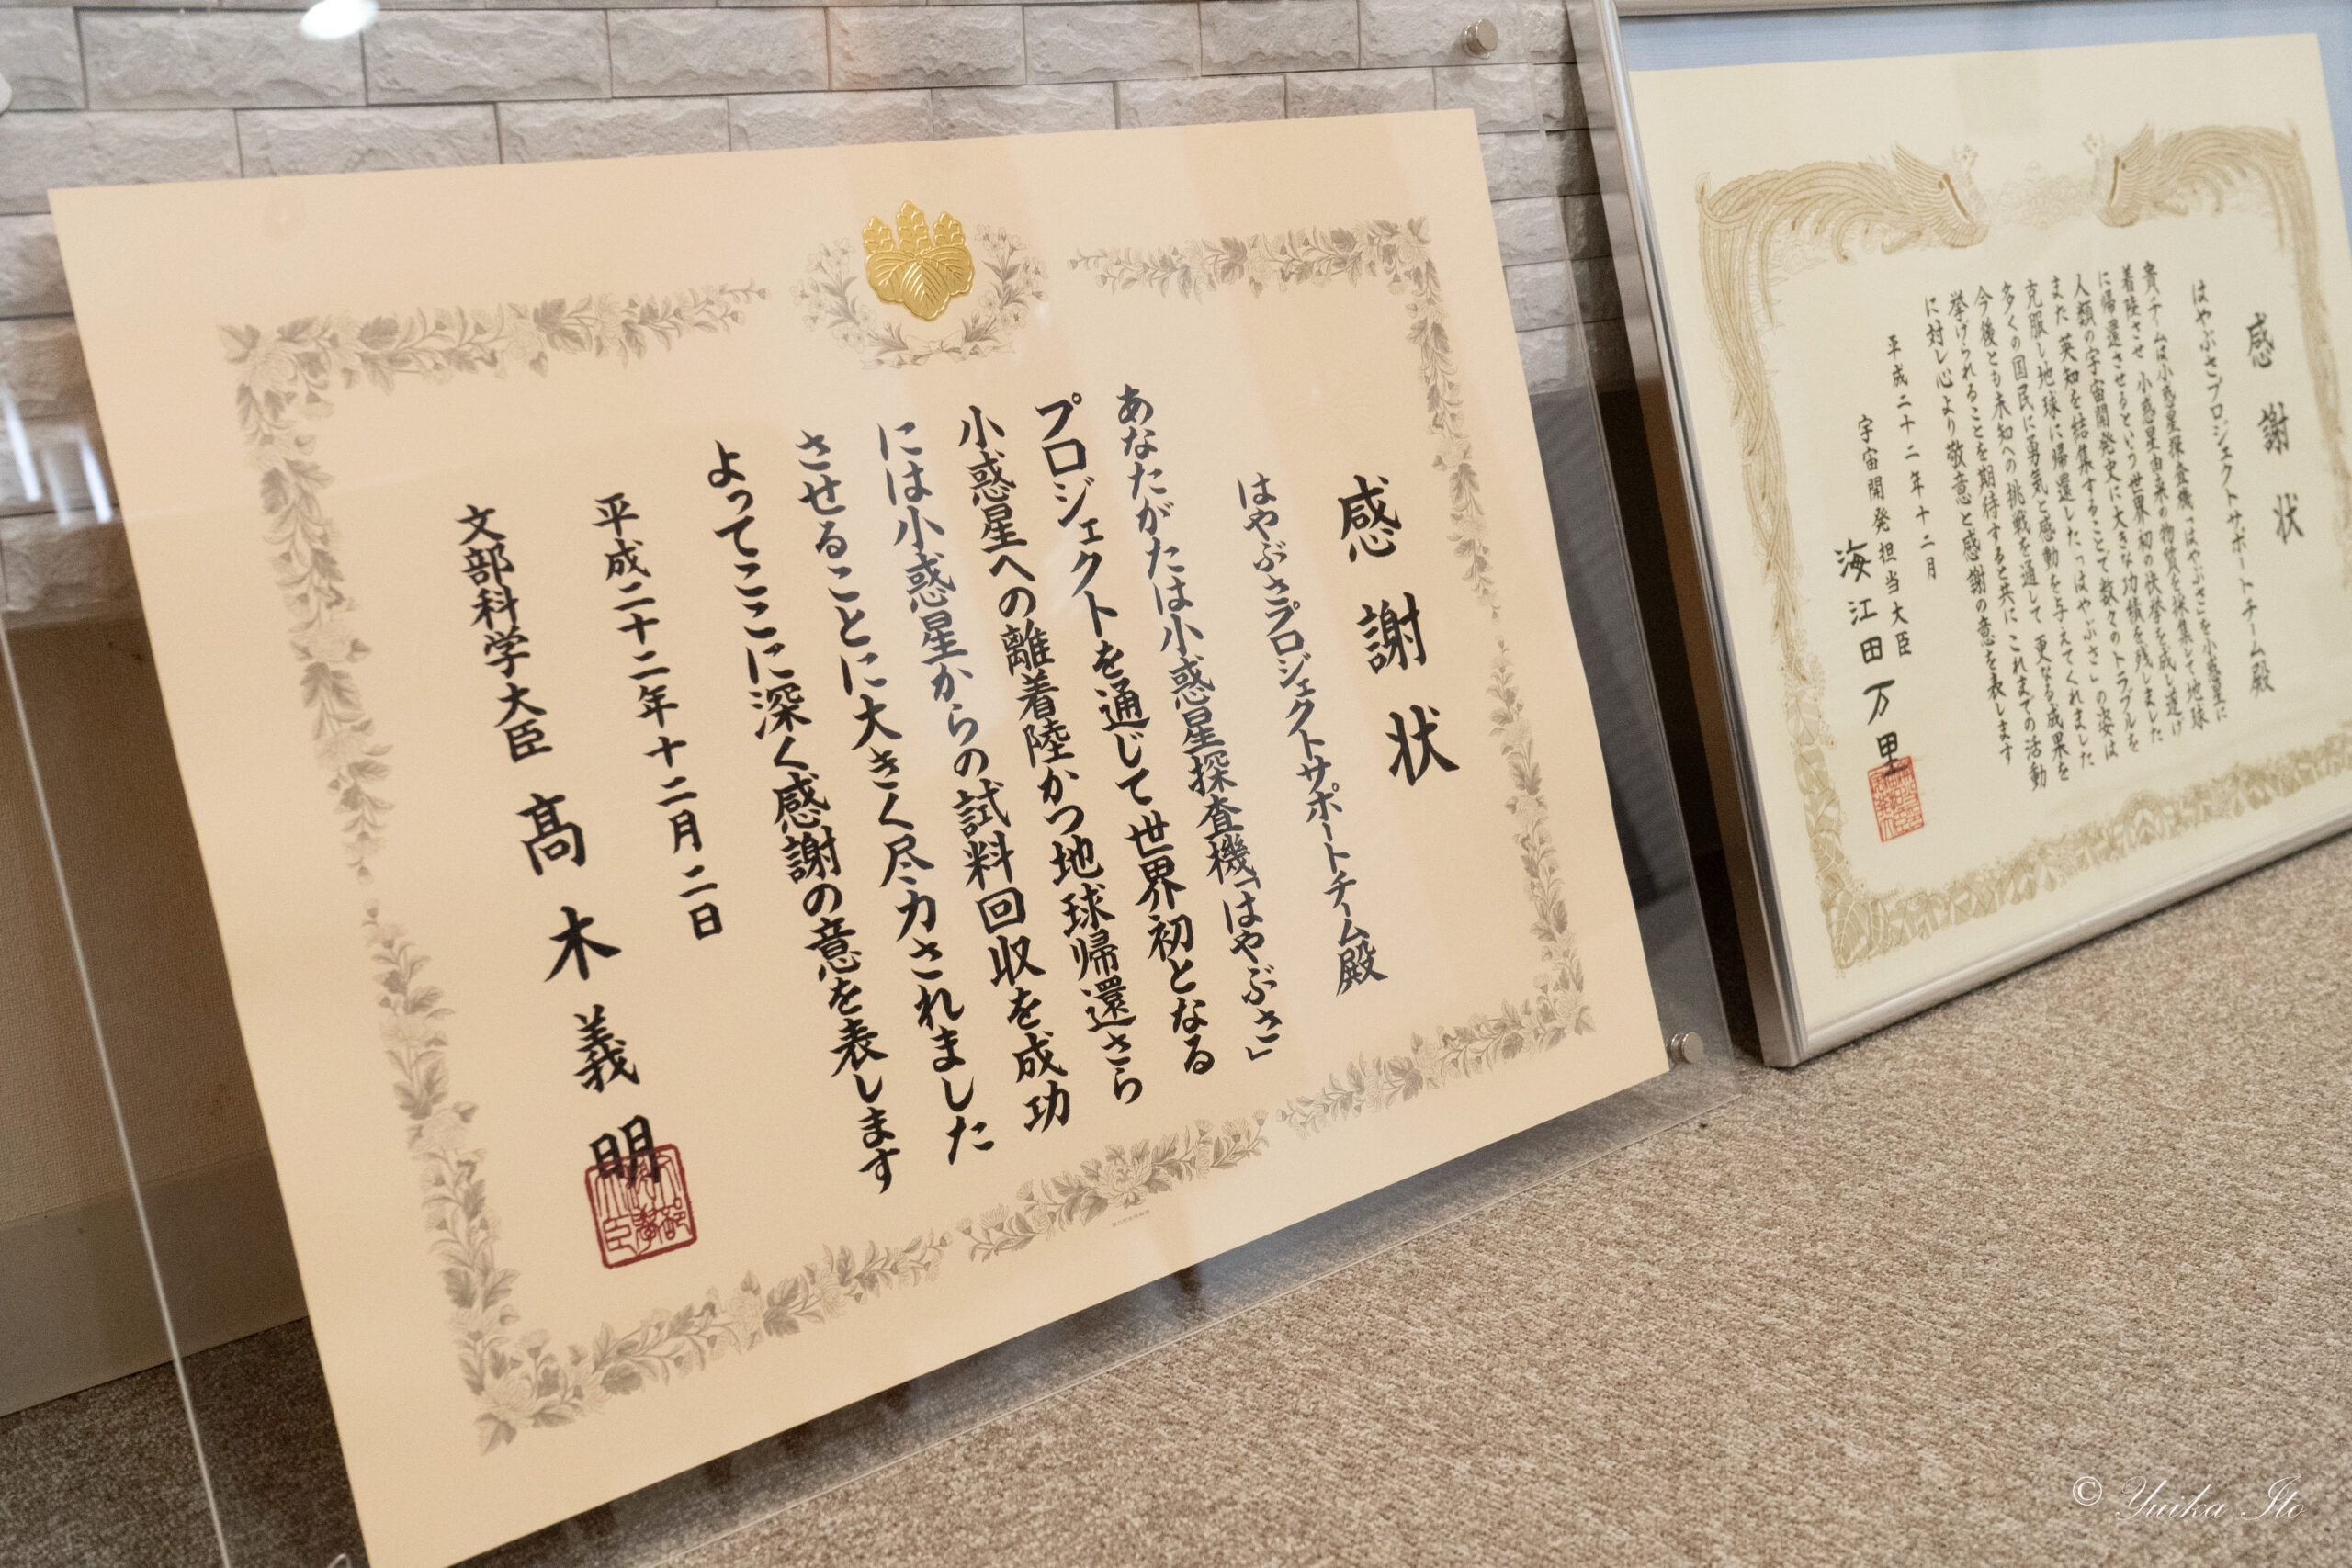 感謝状
はやぶさプロジェクトサポートチーム殿
あなたがたは小惑星探査機「はやぶさ」
プロジェクトを通じて世界初となる
小惑星への離着陸かつ地球帰還さら
には小惑星からの試料回収を成功
させることに大きく尽力されました
よってここに深く感謝の意を表します
平成二十二年十二月二日
文部科学大臣 髙木義明
感謝状
はやぶさプロジェクトサポートチーム殿
貴チームは小惑星探査機「はやぶさ」を小惑星に
着陸させ 小惑星由来の物質を採集して地球
に帰還させるという世界初の快挙を成し遂げ
人類の宇宙開発史に大きな功績を残しました
また 英知を結集することで数々のトラブルを
克服し地球に帰還した「はやぶさ」の姿は
多くの国民に勇気と感動を与えてくれました
今後とも未知への挑戦を通して 更なる成果を
挙げられることを期待すると共に これまでの活動
に対し心より敬意と感謝の意を表します
平成二十二年十二月
宇宙開発担当大臣
海江田万里
© Yuika Ito